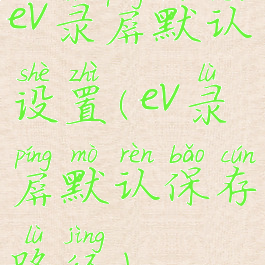 ev录屏默认
shè zhì lù
设置(ev录
píng mò rèn bǎo cún
屏默认保存
lù jìng
路径)